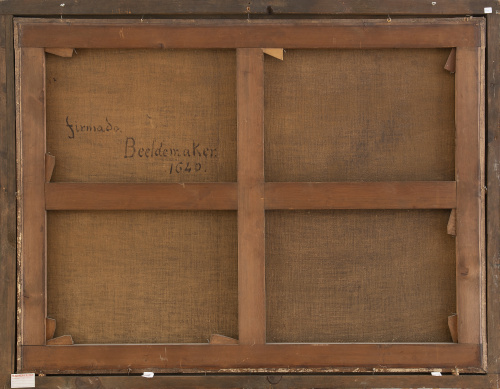 firmado.
Beeldemaker.
1640.